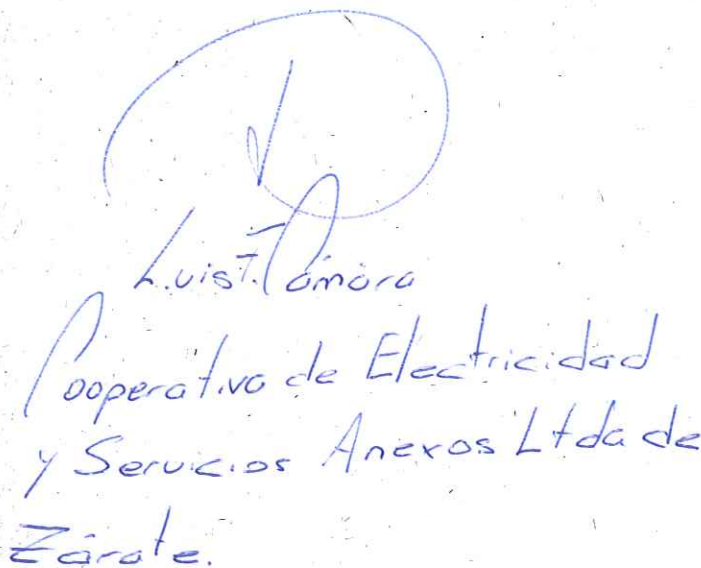 Luis F. Cámara
Cooperativa de Electricidad
y Servicios Anexos Ltda de
Zárate.